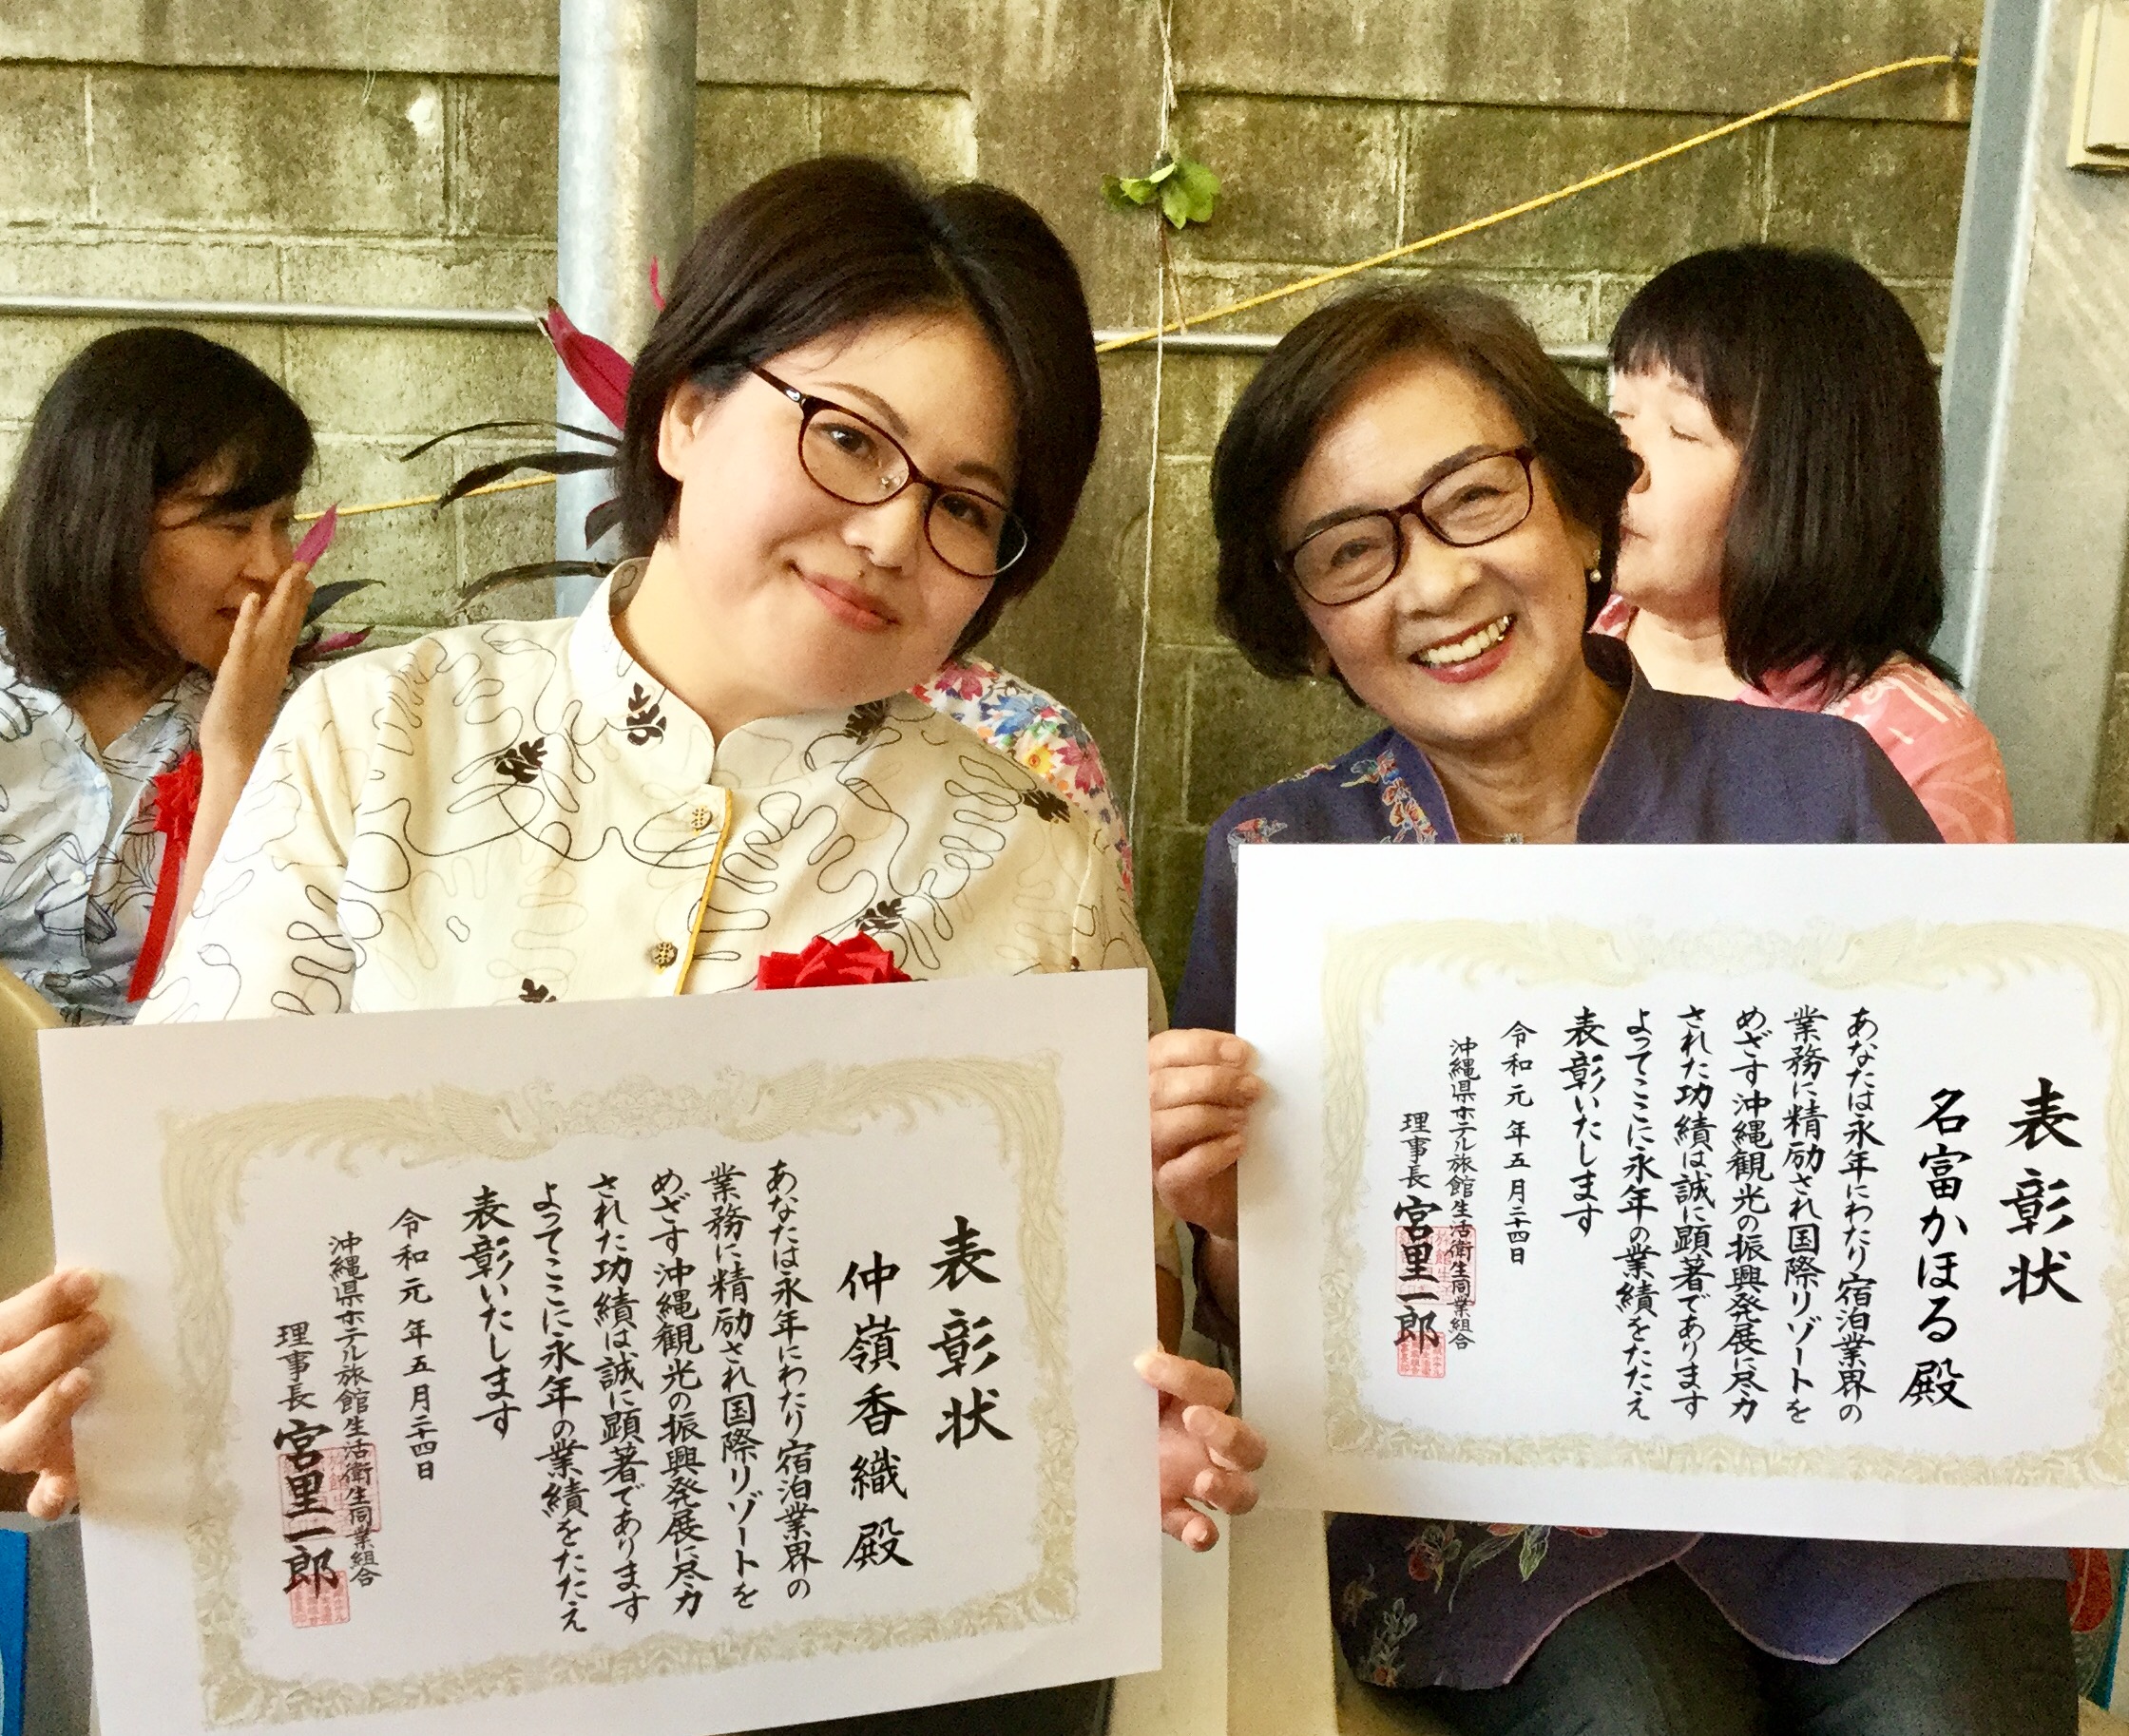 表彰状
仲嶺香織殿
あなたは永年にわたり宿泊業界の
業務に精励され国際リゾートを
めざす沖縄観光の振興発展に尽力
された功績は誠に顕著であります
よってここに永年の業績をたたえ
表彰いたします
令和元年五月二十四日
沖縄県ホテル旅館生活衛生同業組合
理事長 宮里一郎
表彰状
名富かほる殿
あなたは永年にわたり宿泊業界の
業務に精励され国際リゾートを
めざす沖縄観光の振興発展に尽力
された功績は誠に顕著であります
よってここに永年の業績をたたえ
表彰いたします
令和元年五月二十四日
沖縄県ホテル旅館生活衛生同業組合
理事長 宮里一郎